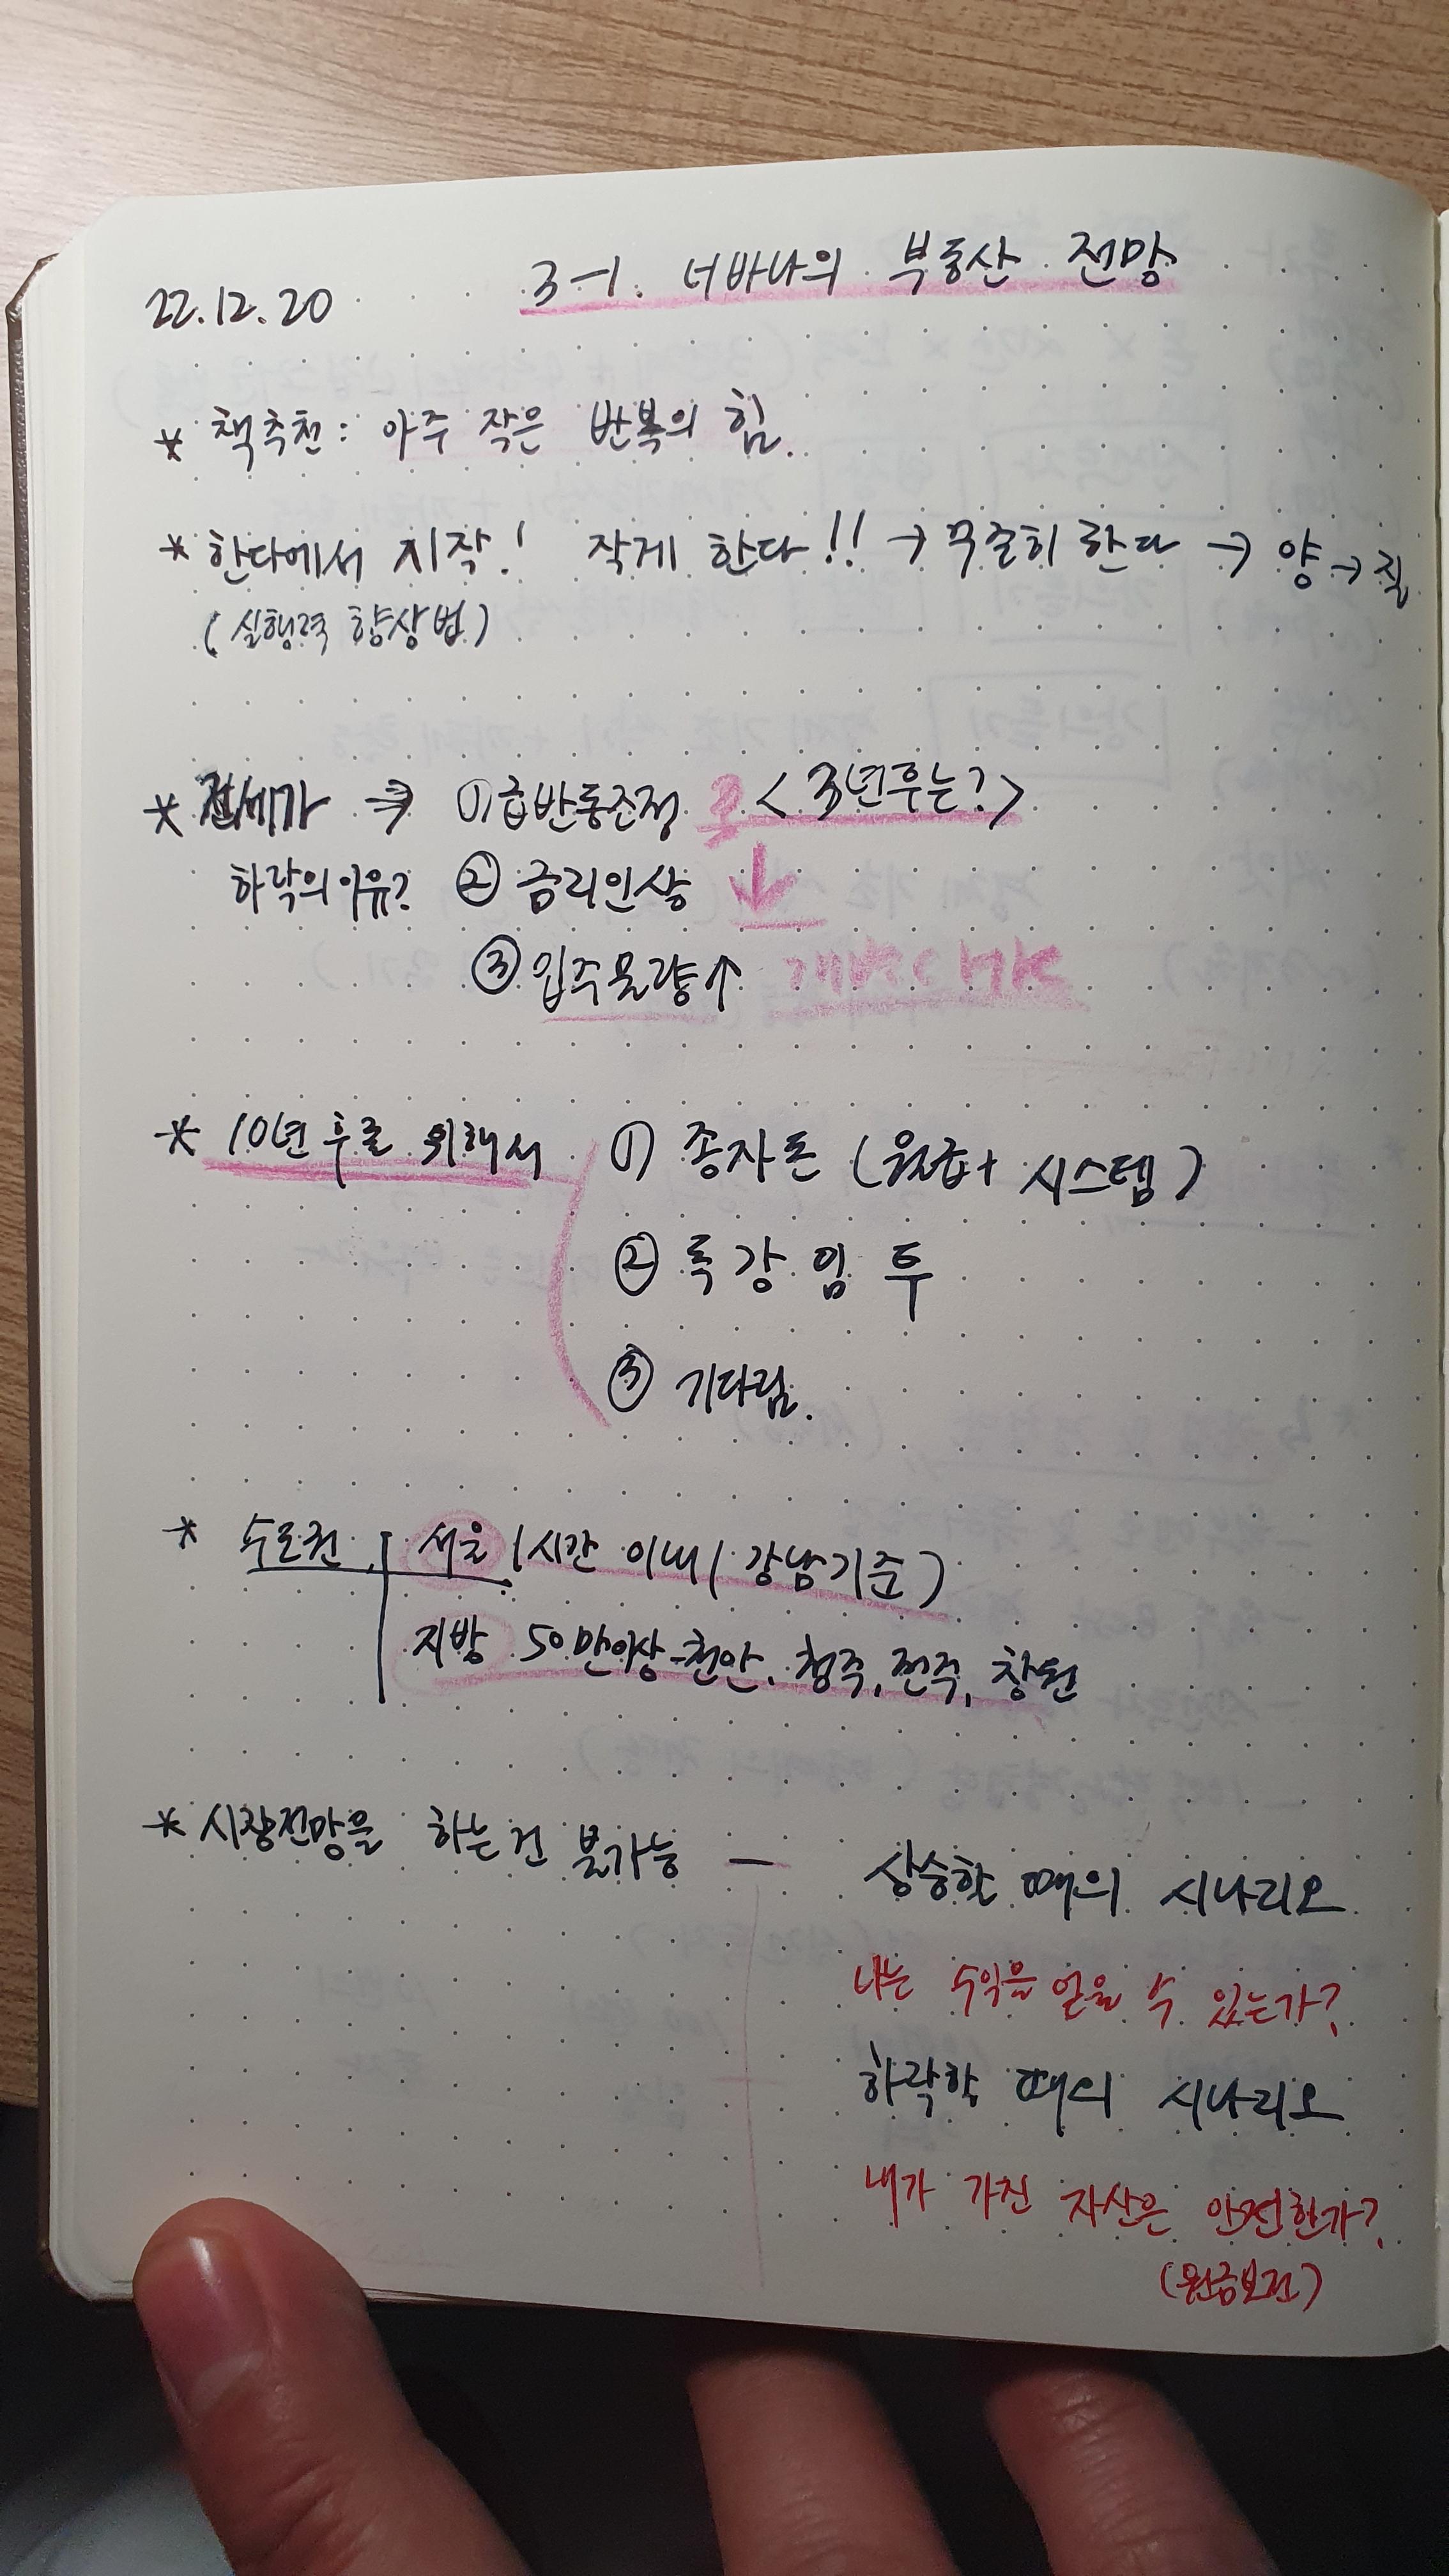 22.12.20
3-1. 너바나의 부동산 전망
* 책추천: 아주 작은 반복의 힘.
* 한다에서 시작! 작게 한다!! → 꾸준히 한다 → 양 → 질
(실행력 향상법)
* 전세가 → ① 급반등조정 <3년후는?>
하락의 이유? ② 금리인상 ↓
③ 입주물량↑
* 10년 후를 위해서 ① 종자돈 (월급+ 시스템)
② 독 강 임 투
③ 기다림.
* 수도권 서울 1시간 이내 (강남기준)
지방 50만이상-천안, 청주, 전주, 창원
* 시장전망을 하는건 불가능 — 상승할 때의 시나리오
나는 수익을 얻을 수 있는가?
하락할 때의 시나리오
내가 가진 자산은 안전한가?
(원금보전)